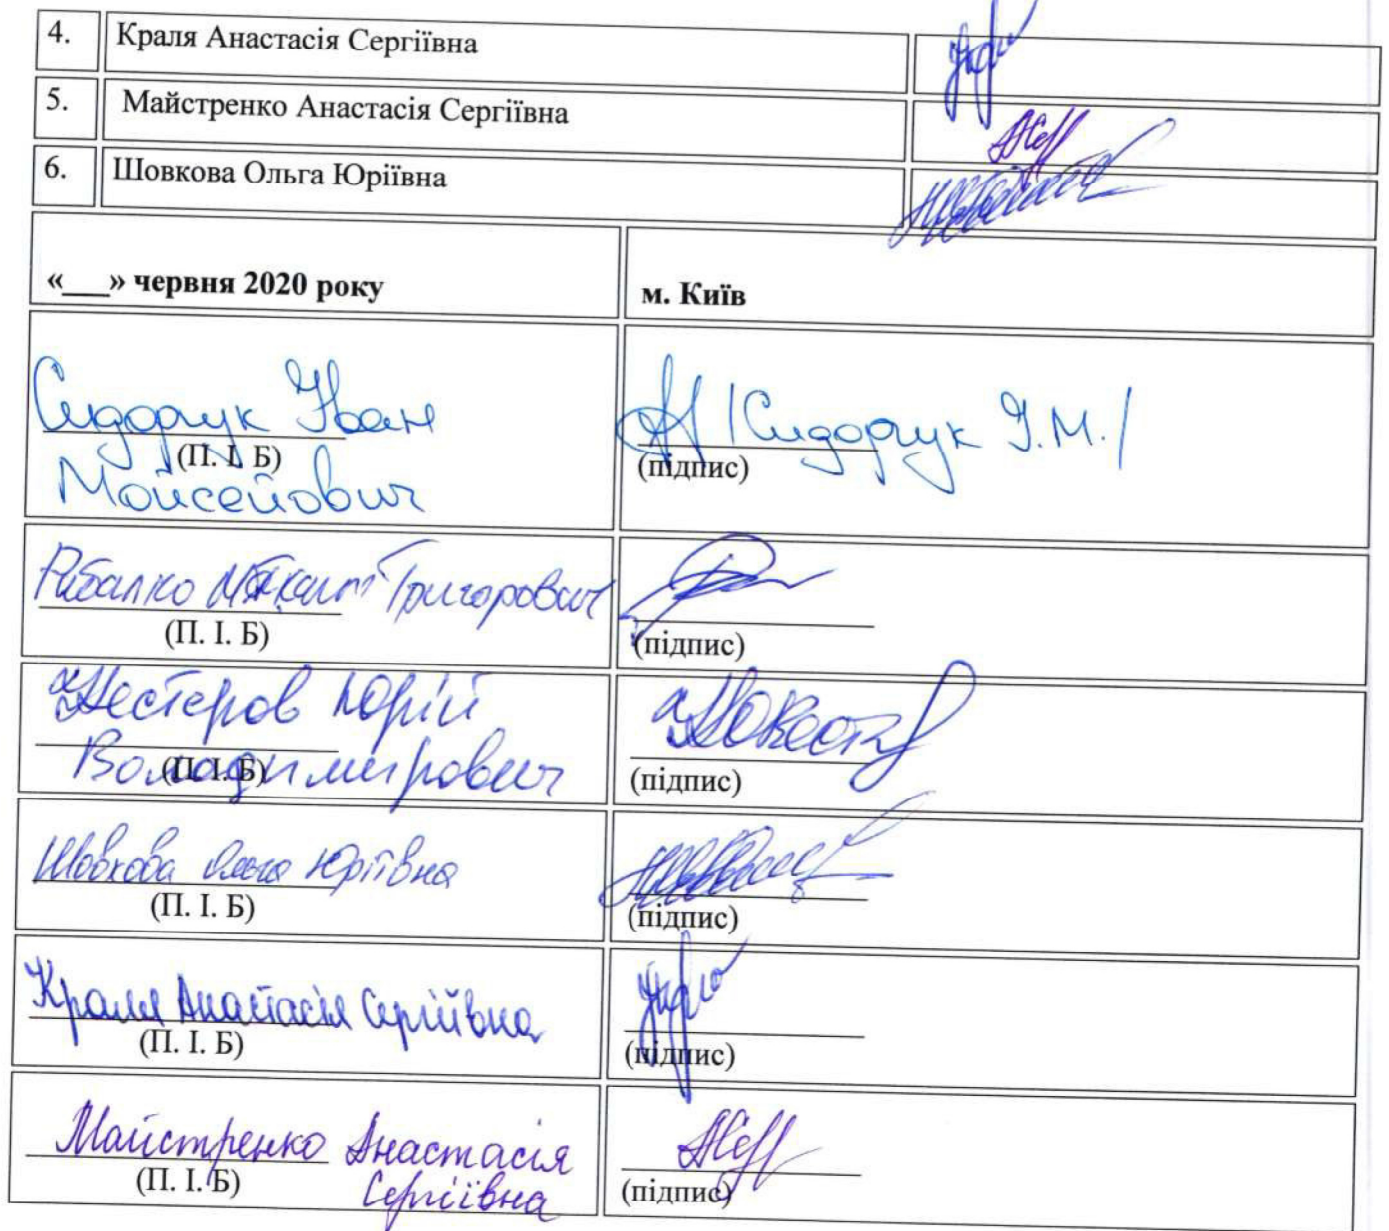 4. Краля Анастасія Сергіївна
5. Майстренко Анастасія Сергіївна
6. Шовкова Ольга Юріївна
«___» червня 2020 року м. Київ
Сидорчук Іван /Сидорчук І.М./
(П. І. Б) (підпис)
Мойсейович
Рибалко Григорович
(П. І. Б) (підпис)
Нестеров Юрій
Володимирович
(П. І. Б) (підпис)
Шовкова Ольга Юріївна
(П. І. Б) (підпис)
Краля Анастасія Сергіївна
(П. І. Б) (підпис)
Майстренко Анастасія
Сергіївна
(П. І. Б) (підпис)